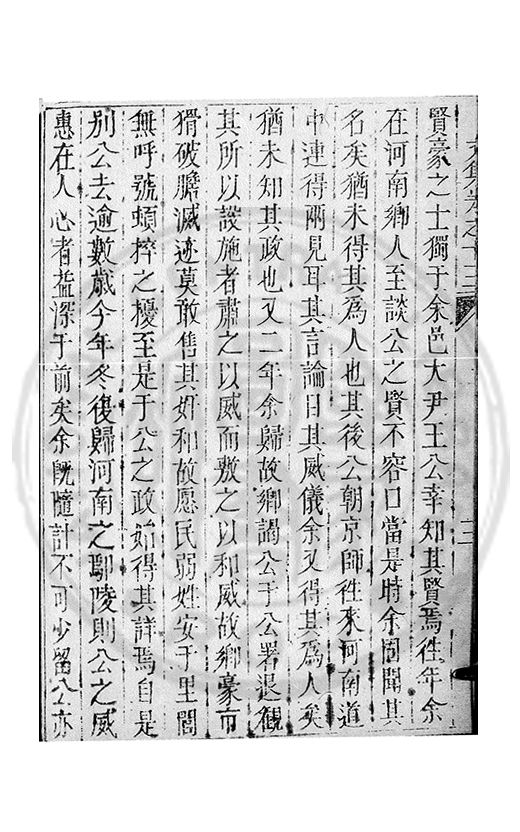 賢豪之士獨于余邑大尹王公幸知其賢焉往年余
在河南鄉人至談公之賢不容口當是時余固聞其
名矣猶未得其爲人也其後公朝京師往來河南道
中連得兩見耳其言論目其威儀余又得其爲人矣
猶未知其政也又二年余歸故鄉謁公于公署退觀
其所以設施者肅之以威而敷之以和威故鄉豪市
猾破膽滅迹莫敢售其奸和故愿民弱姓安于里閭
無呼號煩捽之擾至是于公之政始得其詳焉自是
別公去逾數歲今年冬復歸河南之鄢陵則公之威
惠在人心者益深于前矣余旣隨計不可少留公亦